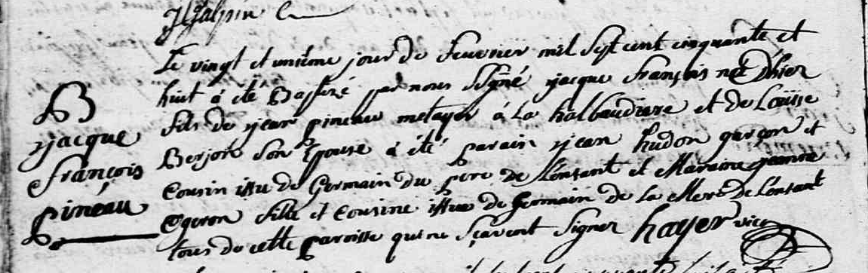 Le vingt et unième jour de feuvrier mil sept cent cinquante et
huit a été Baptizé par nous signé jacque françois né d'hier
fils de jean pineau metayer à la halbaudiere et de Louise
Berjon son Epouse a été parain jean hudon garçon et
cousin issu de Germain du pere de L'ensant et Maraine jeanne
ogeron fille et cousine issue de Germain de la Mere de L'ensant
tous de cette paroisse qui ne sçavent signer hayer vic
B
jacque
françois
pineau